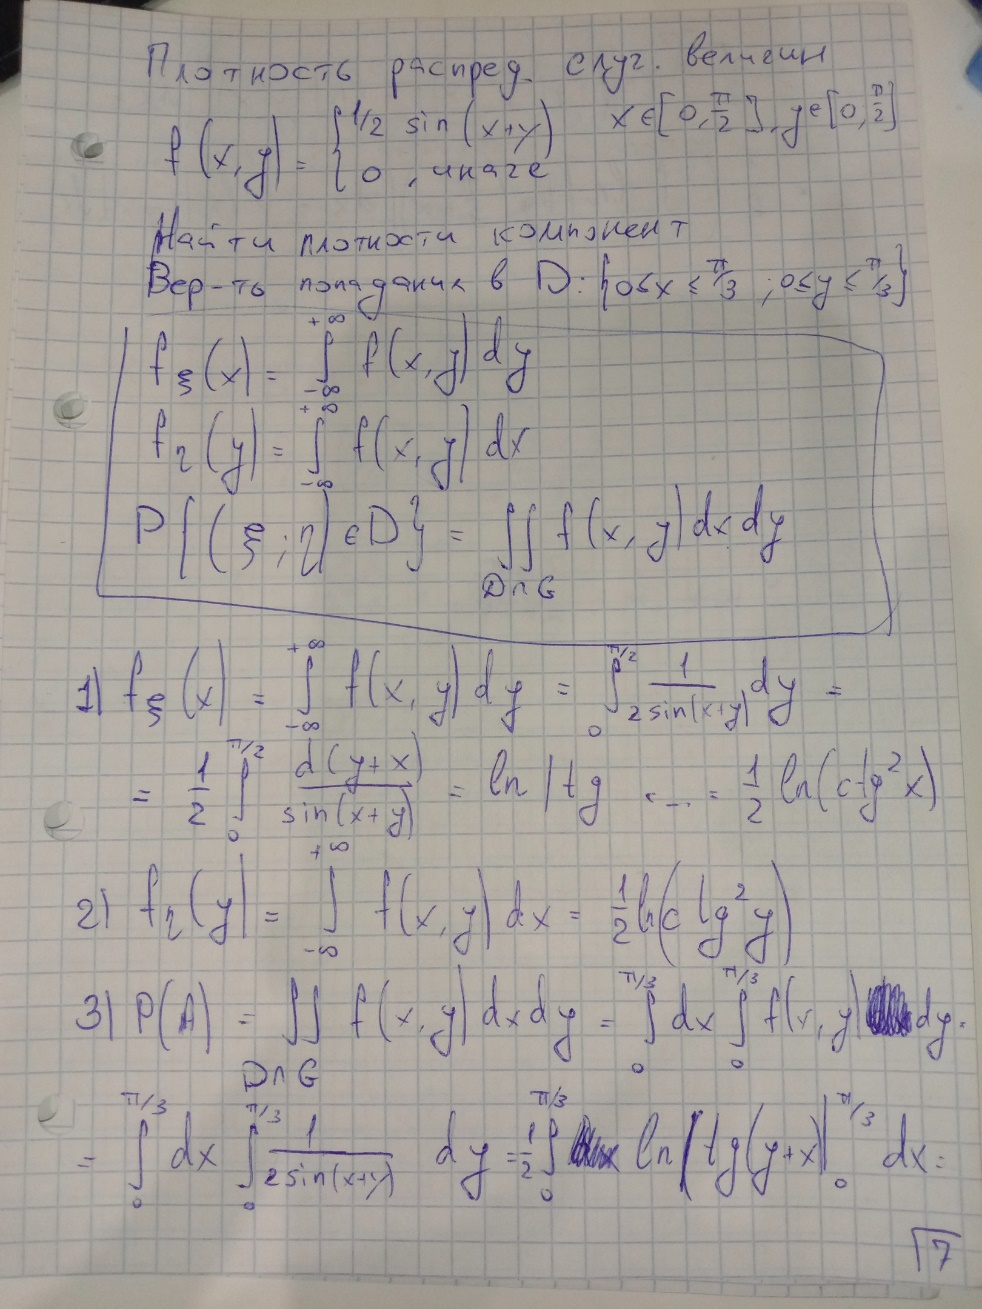 Плотность распред. случ. величин
f(x,y) = { 1/2 sin(x+y) x∈[0,π/2], y∈[0,π/2]
{ 0, иначе
Найти плотности компонент
Вер-ть попадания в D: {0≤x≤π/3 ; 0≤y≤π/3}
f_ξ(x) = ∫_{-∞}^{+∞} f(x,y) dy
f_η(y) = ∫_{-∞}^{+∞} f(x,y) dx
P{(ξ;η)∈D} = ∬_{D∩G} f(x,y) dx dy
1) f_ξ(x) = ∫_{-∞}^{+∞} f(x,y) dy = ∫_0^{π/2} 1/(2 sin(x+y)) dy =
= 1/2 ∫_0^{π/2} d(y+x)/sin(x+y) = ln|tg ... = 1/2 ln(ctg²x)
2) f_η(y) = ∫_{-∞}^{+∞} f(x,y) dx = 1/2 ln(ctg²y)
3) P(A) = ∬_{D∩G} f(x,y) dx dy = ∫_0^{π/3} dx ∫_0^{π/3} f(x,y) dy =
= ∫_0^{π/3} dx ∫_0^{π/3} 1/(2 sin(x+y)) dy = 1/2 ∫_0^{π/3} ln|tg(y+x)|_0^{π/3} dx =
7